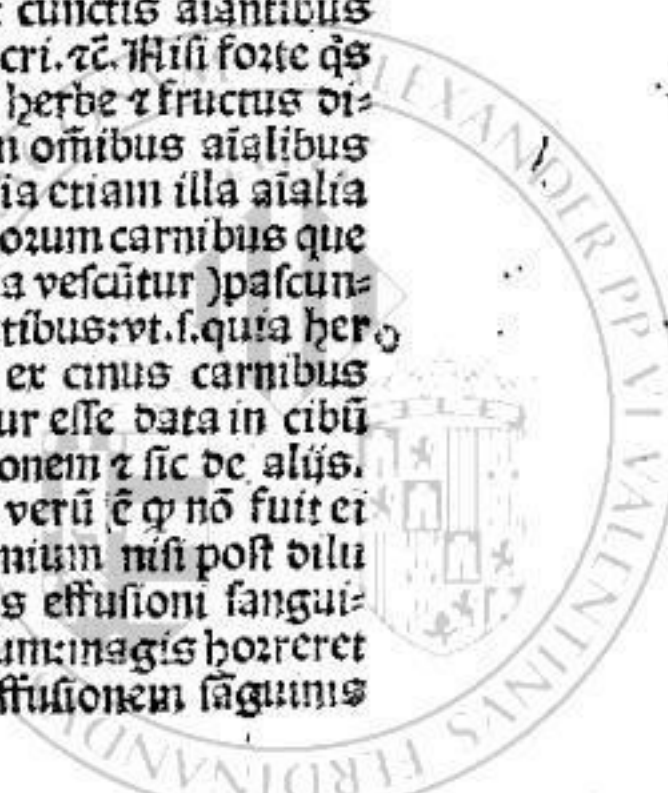 cunctis aiantibus
cri. ⁊c̄. Niſi foꝛte q̄s
herbe ⁊ fructus di⸗
n om̄ibus aīalibus
ia etiam illa aīalia
oꝛum carnibus que
a veſcūtur )paſcun⸗
tibus:vt.ſ.quia her
ex cinus carnibus
ur eſſe data in cibū
onem ⁊ ſic de alijs.
verū ē ꝙ nō fuit ei
nium niſi poſt dilu
s effuſioni ſangui⸗
um:magis hoꝛreret
ffuſionem ſāguinis
ALEXANDER PP VI VALENTINVS FERDINANDV